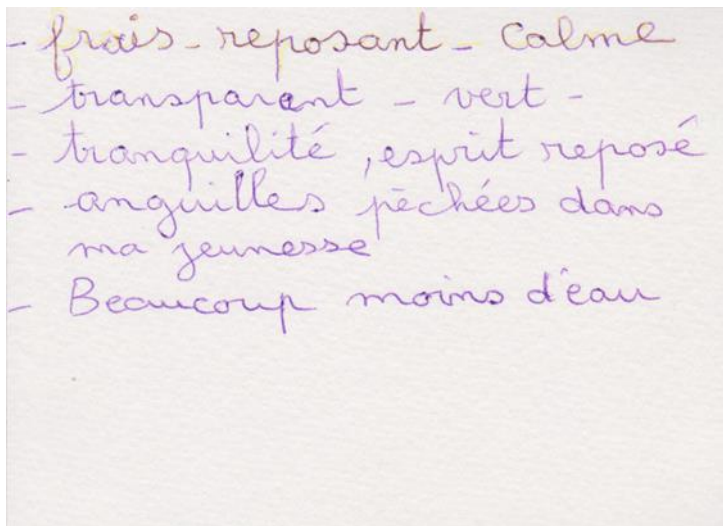 - frais - reposant - calme
- transparent - vert -
- tranquilité, esprit reposé
- anguilles pêchées dans
ma jeunesse
- Beaucoup moins d'eau